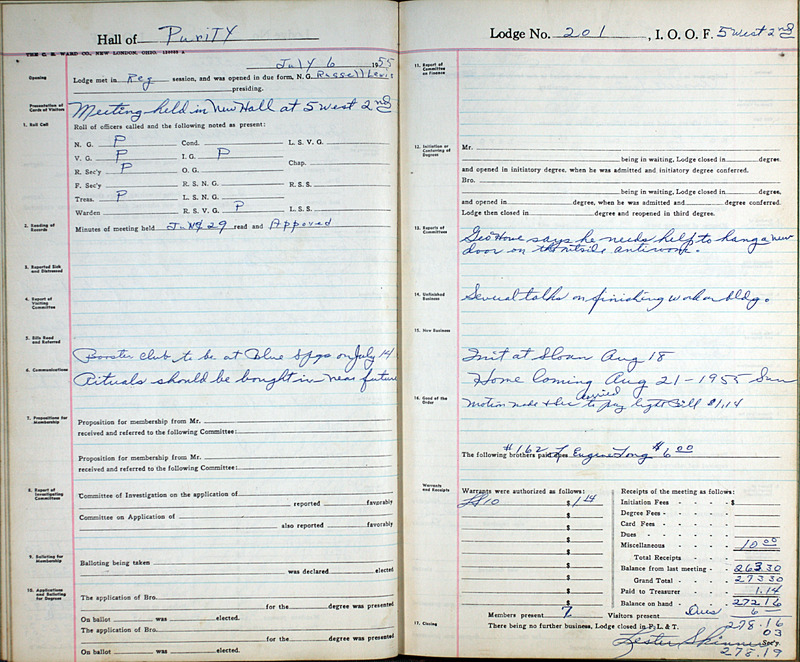 Hall of Purity
THE C. E. WARD CO., NEW LONDON, OHIO.
July 6 1955
Opening
Lodge met in Reg session, and was opened in due form, N. G. Russell Lewis
presiding.
Presentation of Cards of Visitors
Meeting held in New Hall at 5 West 2nd
1. Roll Call
Roll of officers called and the following noted as present:
N. G. P Cond. L. S. V. G.
V. G. P I. G. P Chap.
R. Sec'y P O. G.
F. Sec'y R. S. N. G. R. S. S.
Treas. P L. S. N. G.
Warden R. S. V. G. P L. S. S.
2. Reading of Records
Minutes of meeting held June 29 read and Appoved
3. Reported Sick and Distressed
4. Report of Visiting Committee
5. Bills Read and Referred
Booster club to be at Blue Spgs on July 14
6. Communications
Rituals should be bought in near future
7. Propositions for Membership
Proposition for membership from Mr.
received and referred to the following Committee:
Proposition for membership from Mr.
received and referred to the following Committee:
8. Report of Investigating Committees
Committee of Investigation on the application of
reported favorably
Committee on Application of
also reported favorably
9. Balloting for Membership
Balloting being taken
was declared elected
10. Applications and Balloting for Degrees
The application of Bro.
for the degree was presented
On ballot was elected.
The application of Bro.
for the degree was presented
On ballot was elected.
Lodge No. 201, I. O. O. F. 5 West 2nd
11. Report of Committee on Finance
12. Initiation or Conferring of Degrees
Mr.
being in waiting, Lodge closed in degree,
and opened in initiatory degree, when he was admitted and initiatory degree conferred.
Bro.
being in waiting, Lodge closed in degree,
and opened in degree, when he was admitted and degree conferred.
Lodge then closed in degree and reopened in third degree.
13. Reports of Committees
Geo Howe says he needs help to hang a new
door on the
14. Unfinished Business
Several talks on finishing work on bldg.
15. New Business
Init at Sloan Aug 18
Home Coming Aug 21-1955 Sun
16. Good of the Order
carried
Motion made to pay light Bill $1.14
The following brothers paid dues
#162 Eugene Long $6 00
Warrants and Receipts
Warrants were authorized as follows:
$1 14
$
$
$
$
$
$
$
$
Receipts of the meeting as follows:
Initiation Fees $
Degree Fees
Card Fees
Dues
Miscellaneous 10 00
Total Receipts
Balance from last meeting 263 30
Grand Total 273 30
Paid to Treasurer 1.14
Balance on hand 272 16
Members present 7 Visitors present Dues 6
17. Closing
There being no further business, Lodge closed in F., L. & T.
278.16
03
Lester Skinner Sec'y.
278.19